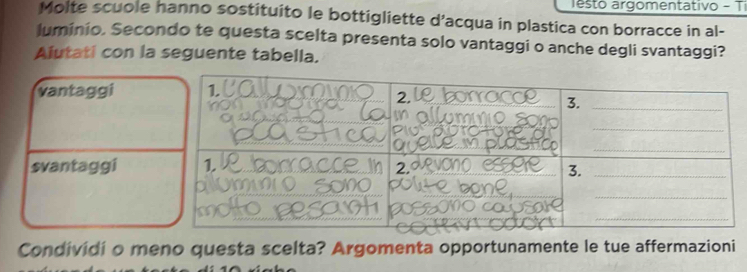 Testo argomentativo - T
Molte scuole hanno sostituito le bottigliette d'acqua in plastica con borracce in al-
luminio. Secondo te questa scelta presenta solo vantaggi o anche degli svantaggi?
Aiutati con la seguente tabella.
vantaggi
1. L'allumminio
non inquina
quanto la
plastica
2. le borracce
in allumminio sono
piu'
quelle in plastica
3.
svantaggi
1. le borracce in
alluminio sono
molto pesanti
2. devono essere
pulite bene,
possono causare
cattivi odori
3.
Condividi o meno questa scelta? Argomenta opportunamente le tue affermazioni